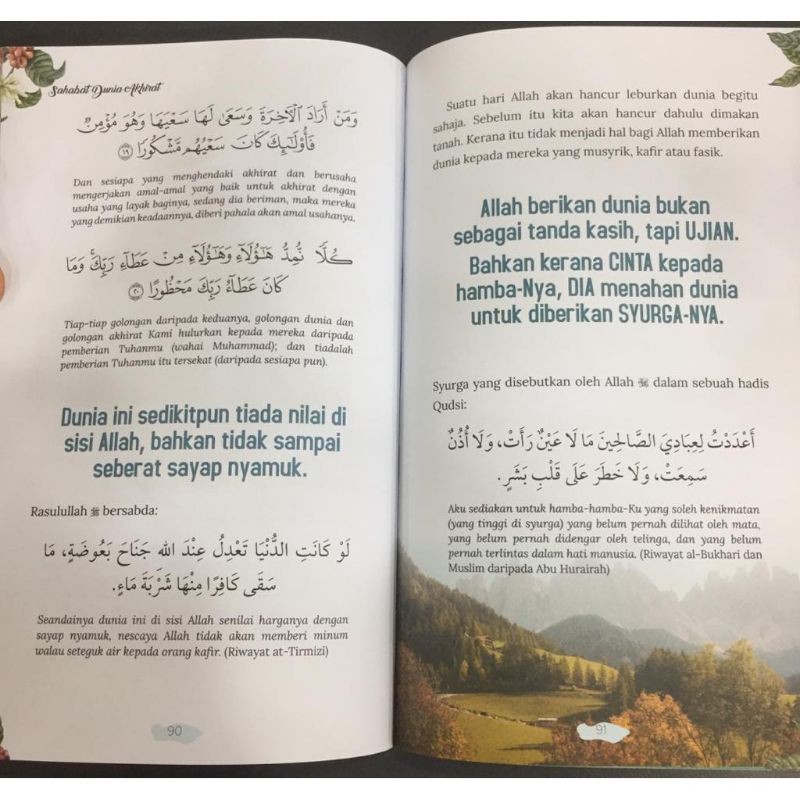 Sahabat Dunia Akhirat
وَمَنْ أَرَادَ ٱلْأَخِرَةَ وَسَعَىٰ لَهَا سَعْيَهَا وَهُوَ مُؤْمِنٌ
فَأُو۟لَـٰٓئِكَ كَانَ سَعْيُهُم مَّشْكُورًا ١٩
Dan sesiapa yang menghendaki akhirat dan berusaha
mengerjakan amal-amal yang baik untuk akhirat dengan
usaha yang layak baginya, sedang dia beriman, maka mereka
yang demikian keadaannya, diberi pahala akan amal usahanya.
كُلًّا نُّمِدُّ هَـٰٓؤُلَآءِ وَهَـٰٓؤُلَآءِ مِنْ عَطَآءِ رَبِّكَ ۚ وَمَا
كَانَ عَطَآءُ رَبِّكَ مَحْظُورًا ٢٠
Tiap-tiap golongan daripada keduanya, golongan dunia dan
golongan akhirat Kami hulurkan kepada mereka daripada
pemberian Tuhanmu (wahai Muhammad); dan tiadalah
pemberian Tuhanmu itu tersekat (daripada sesiapa pun).
Dunia ini sedikitpun tiada nilai di
sisi Allah, bahkan tidak sampai
seberat sayap nyamuk.
Rasulullah ﷺ bersabda:
لَوْ كَانَتِ الدُّنْيَا تَعْدِلُ عِنْدَ اللهِ جَنَاحَ بَعُوضَةٍ، مَا
سَقَى كَافِرًا مِنْهَا شَرْبَةَ مَاءٍ.
Seandainya dunia ini di sisi Allah senilai harganya dengan
sayap nyamuk, nescaya Allah tidak akan memberi minum
walau seteguk air kepada orang kafir. (Riwayat at-Tirmizi)
90
Suatu hari Allah akan hancur leburkan dunia begitu
sahaja. Sebelum itu kita akan hancur dahulu dimakan
tanah. Kerana itu tidak menjadi hal bagi Allah memberikan
dunia kepada mereka yang musyrik, kafir atau fasik.
Allah berikan dunia bukan
sebagai tanda kasih, tapi UJIAN.
Bahkan kerana CINTA kepada
hamba-Nya, DIA menahan dunia
untuk diberikan SYURGA-NYA.
Syurga yang disebutkan oleh Allah ﷻ dalam sebuah hadis
Qudsi:
أَعْدَدْتُ لِعِبَادِيَ الصَّالِحِينَ مَا لَا عَيْنٌ رَأَتْ، وَلَا أُذُنٌ
سَمِعَتْ، وَلَا خَطَرَ عَلَى قَلْبِ بَشَرٍ.
Aku sediakan untuk hamba-hamba-Ku yang soleh kenikmatan
(yang tinggi di syurga) yang belum pernah dilihat oleh mata,
yang belum pernah didengar oleh telinga, dan yang belum
pernah terlintas dalam hati manusia. (Riwayat al-Bukhari dan
Muslim daripada Abu Hurairah)
91